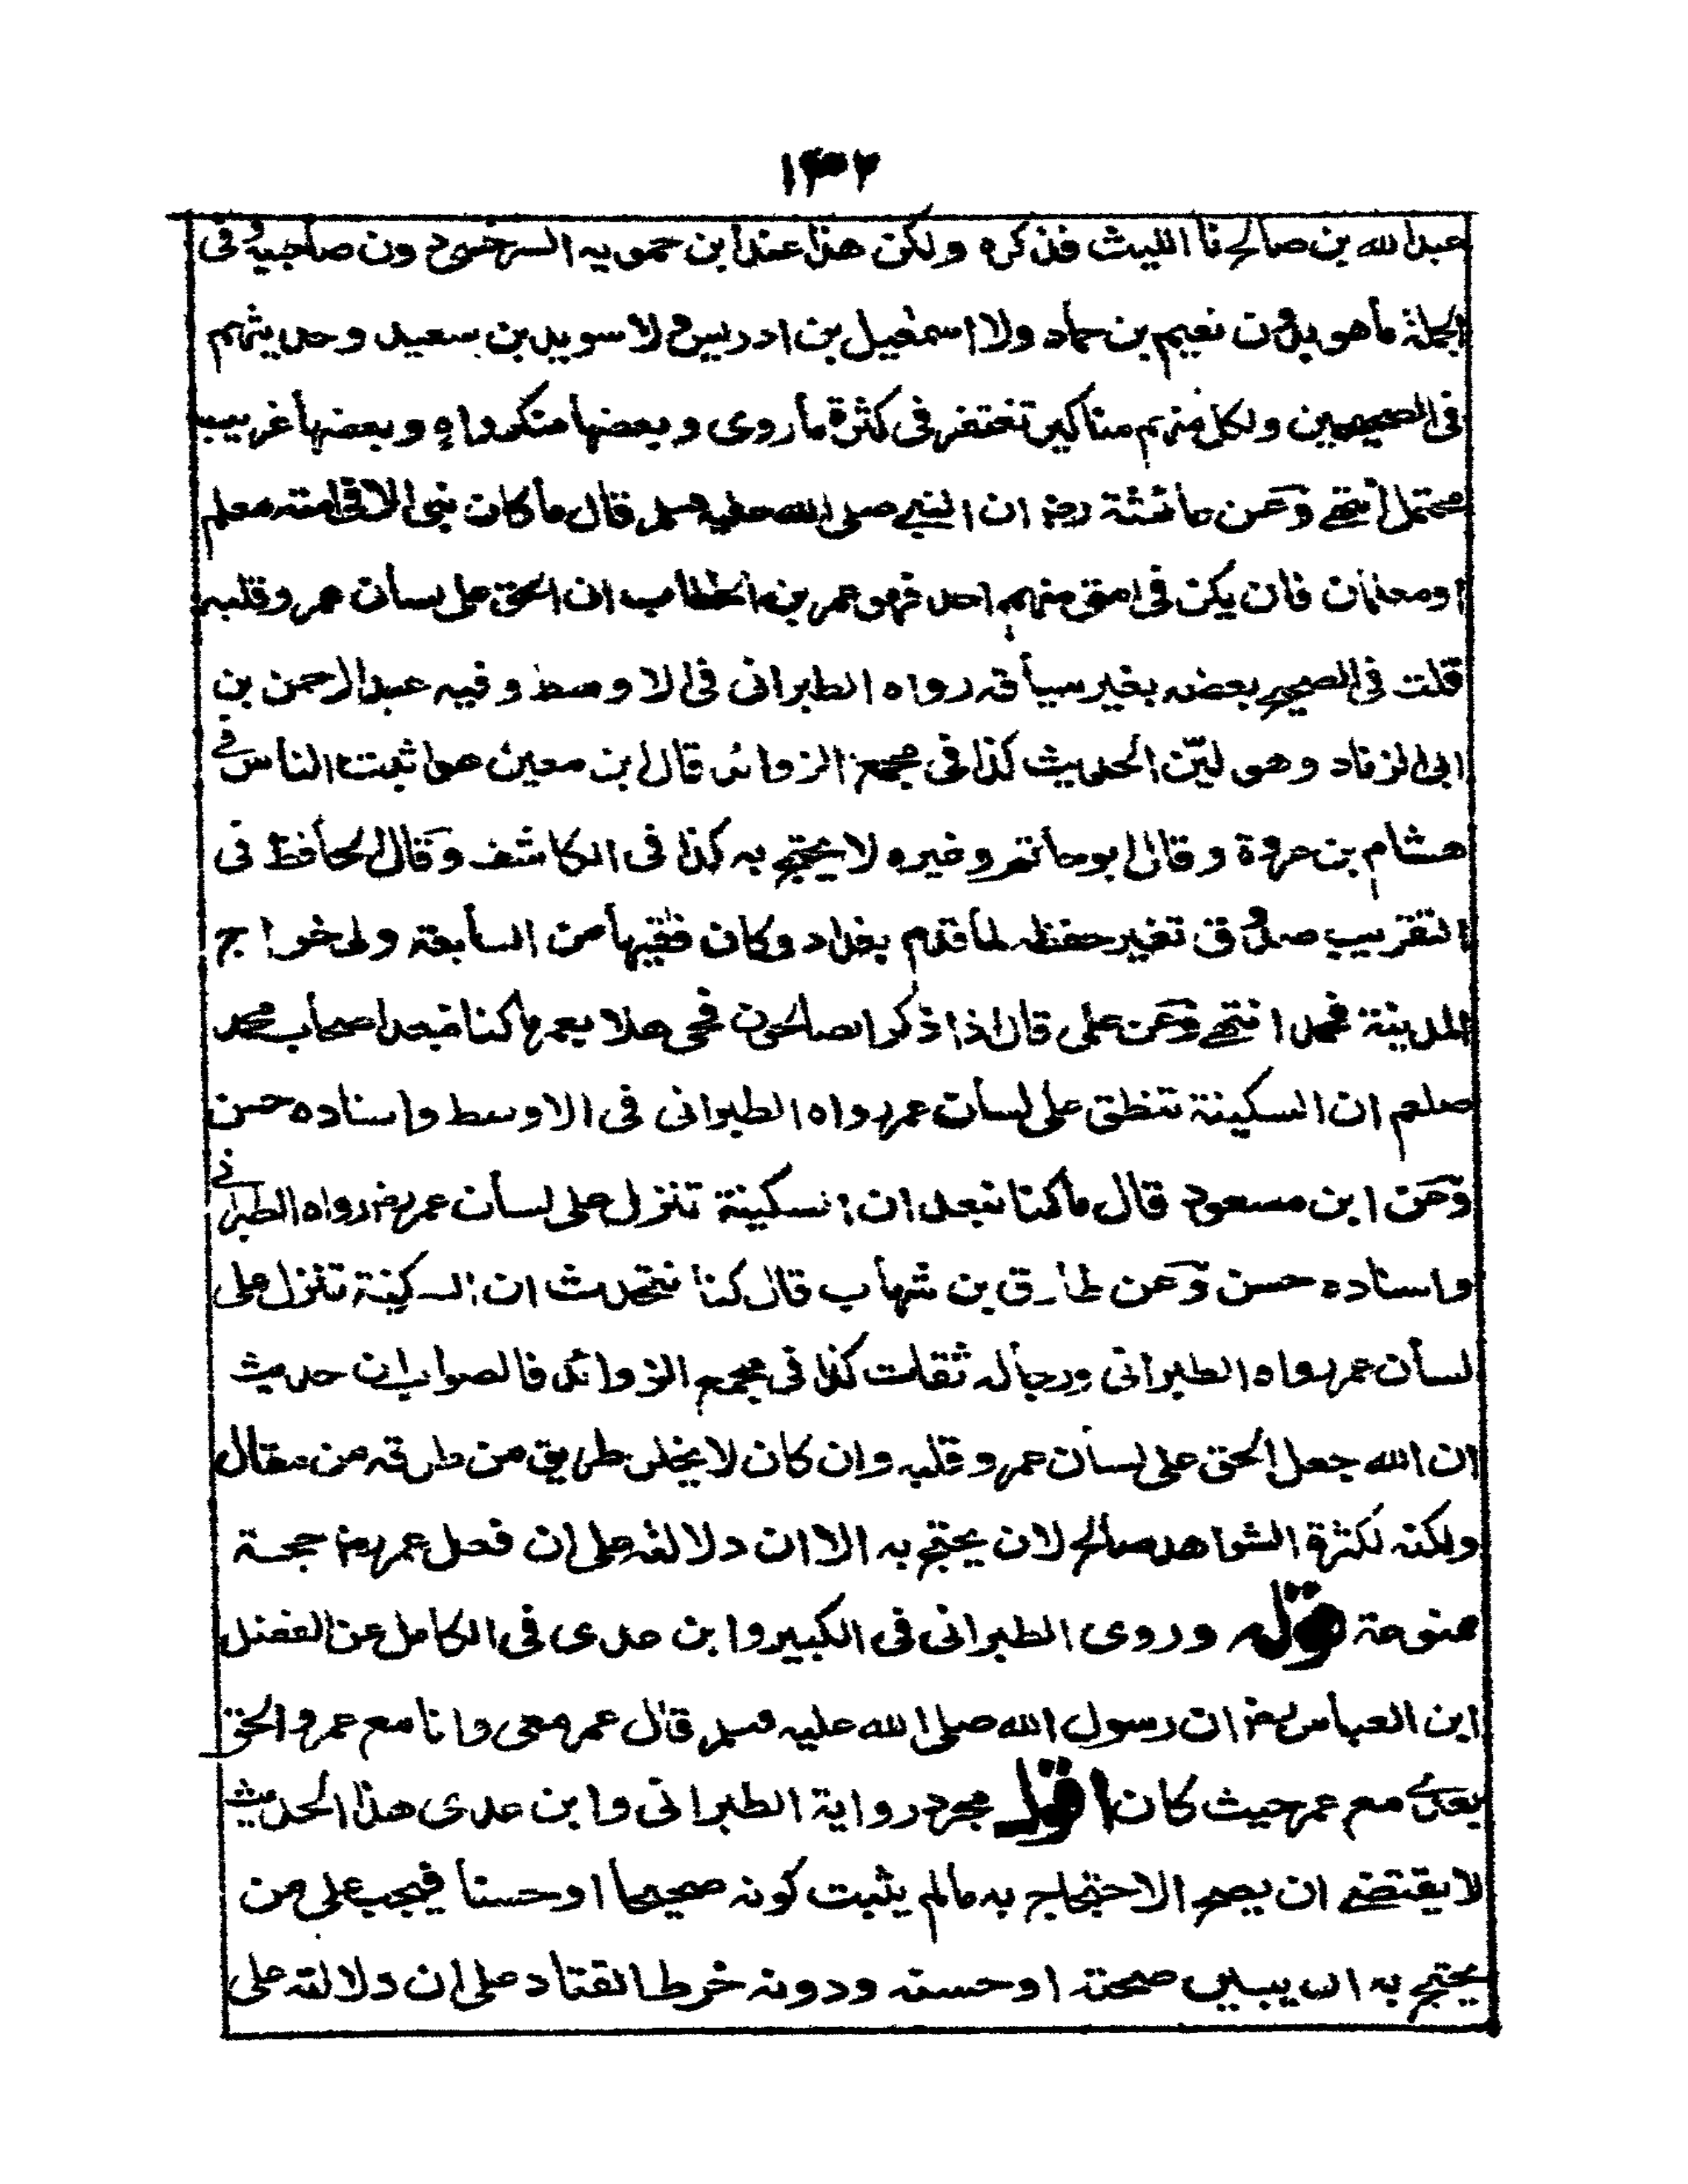 ١٣٢
عبدالله بن صالح نا الليث فذكره ولكن هذا عند ابن حمويه السرخسي دون صاحبيه وفى
الجملة ماهو بدون نعيم بن حماد ولا اسمعيل بن ادريس ولا سويد بن سعيد وحديثهم
فى الصحيحين ولكل منهم مناكير تغتفر فى كثرة ماروى وبعضها منكر واه وبعضها غريب
محتمل انتهے وعن عائشة رضـ ان النبے صلى الله عليه وسلم قال ماكان نبى الا فى امته معلم
او معلمان فان يكن فى امتى منهم احد فهو عمر بن الخطاب ان الحق على لسان عمر وقلبه
قلت فى الصحيح بعضه بغير سياقه رواه الطبرانى فى الاوسط وفيه عبدالرحمن بن
ابى الزناد وهو ليّن الحديث كذا فى مجمع الزوائد قال ابن معين هو اثبت الناس فى
هشام بن عروة وقال ابو حاتم وغيره لا يحتج به كذا فى الكاشف وقال الحافظ فى
التقريب صدوق تغير حفظه لما قدم بغداد وكان فقيها من السابعة ولى خراج
المدينة فحمد انتهے وعن على قال اذا ذكر الصالحون فحى هلا بعمر ما كنا نبعد اصحاب محمد
صلعم ان السكينة تنطق على لسان عمر رواه الطبرانى فى الاوسط واسناده حسن
وعن ابن مسعود قال ماكنا نبعد ان السكينة تنزل على لسان عمر رضـ رواه الطبرانى
واسناده حسن وعن طارق بن شهاب قال كنا نتحدث ان السكينة تنزل على
لسان عمر رواه الطبرانى ورجاله ثقات كذا فى مجمع الزوائد فالصواب ان حديث
ان الله جعل الحق على لسان عمر وقلبه وان كان لا يخلو طريق من طرقه من مقال
ولكنه لكثرة الشواهد صالح لان يحتج به الا ان دلالته على ان فعل عمر رضـ حجة
ممنوعة قوله وروى الطبرانى فى الكبير وابن عدى فى الكامل عن الفضل
ابن العباس رضـ ان رسول الله صلى الله عليه وسلم قال عمر معى وانا مع عمر والحق
بعدى مع عمر حيث كان اقول مجرد رواية الطبرانى وابن عدى هذا الحديث
لا يقتضے ان يصح الاحتجاج به مالم يثبت كونه صحيحا او حسنا فيجب على من
يحتج به ان يبين صحته او حسنه ودونه خرط القتاد على ان دلالته على